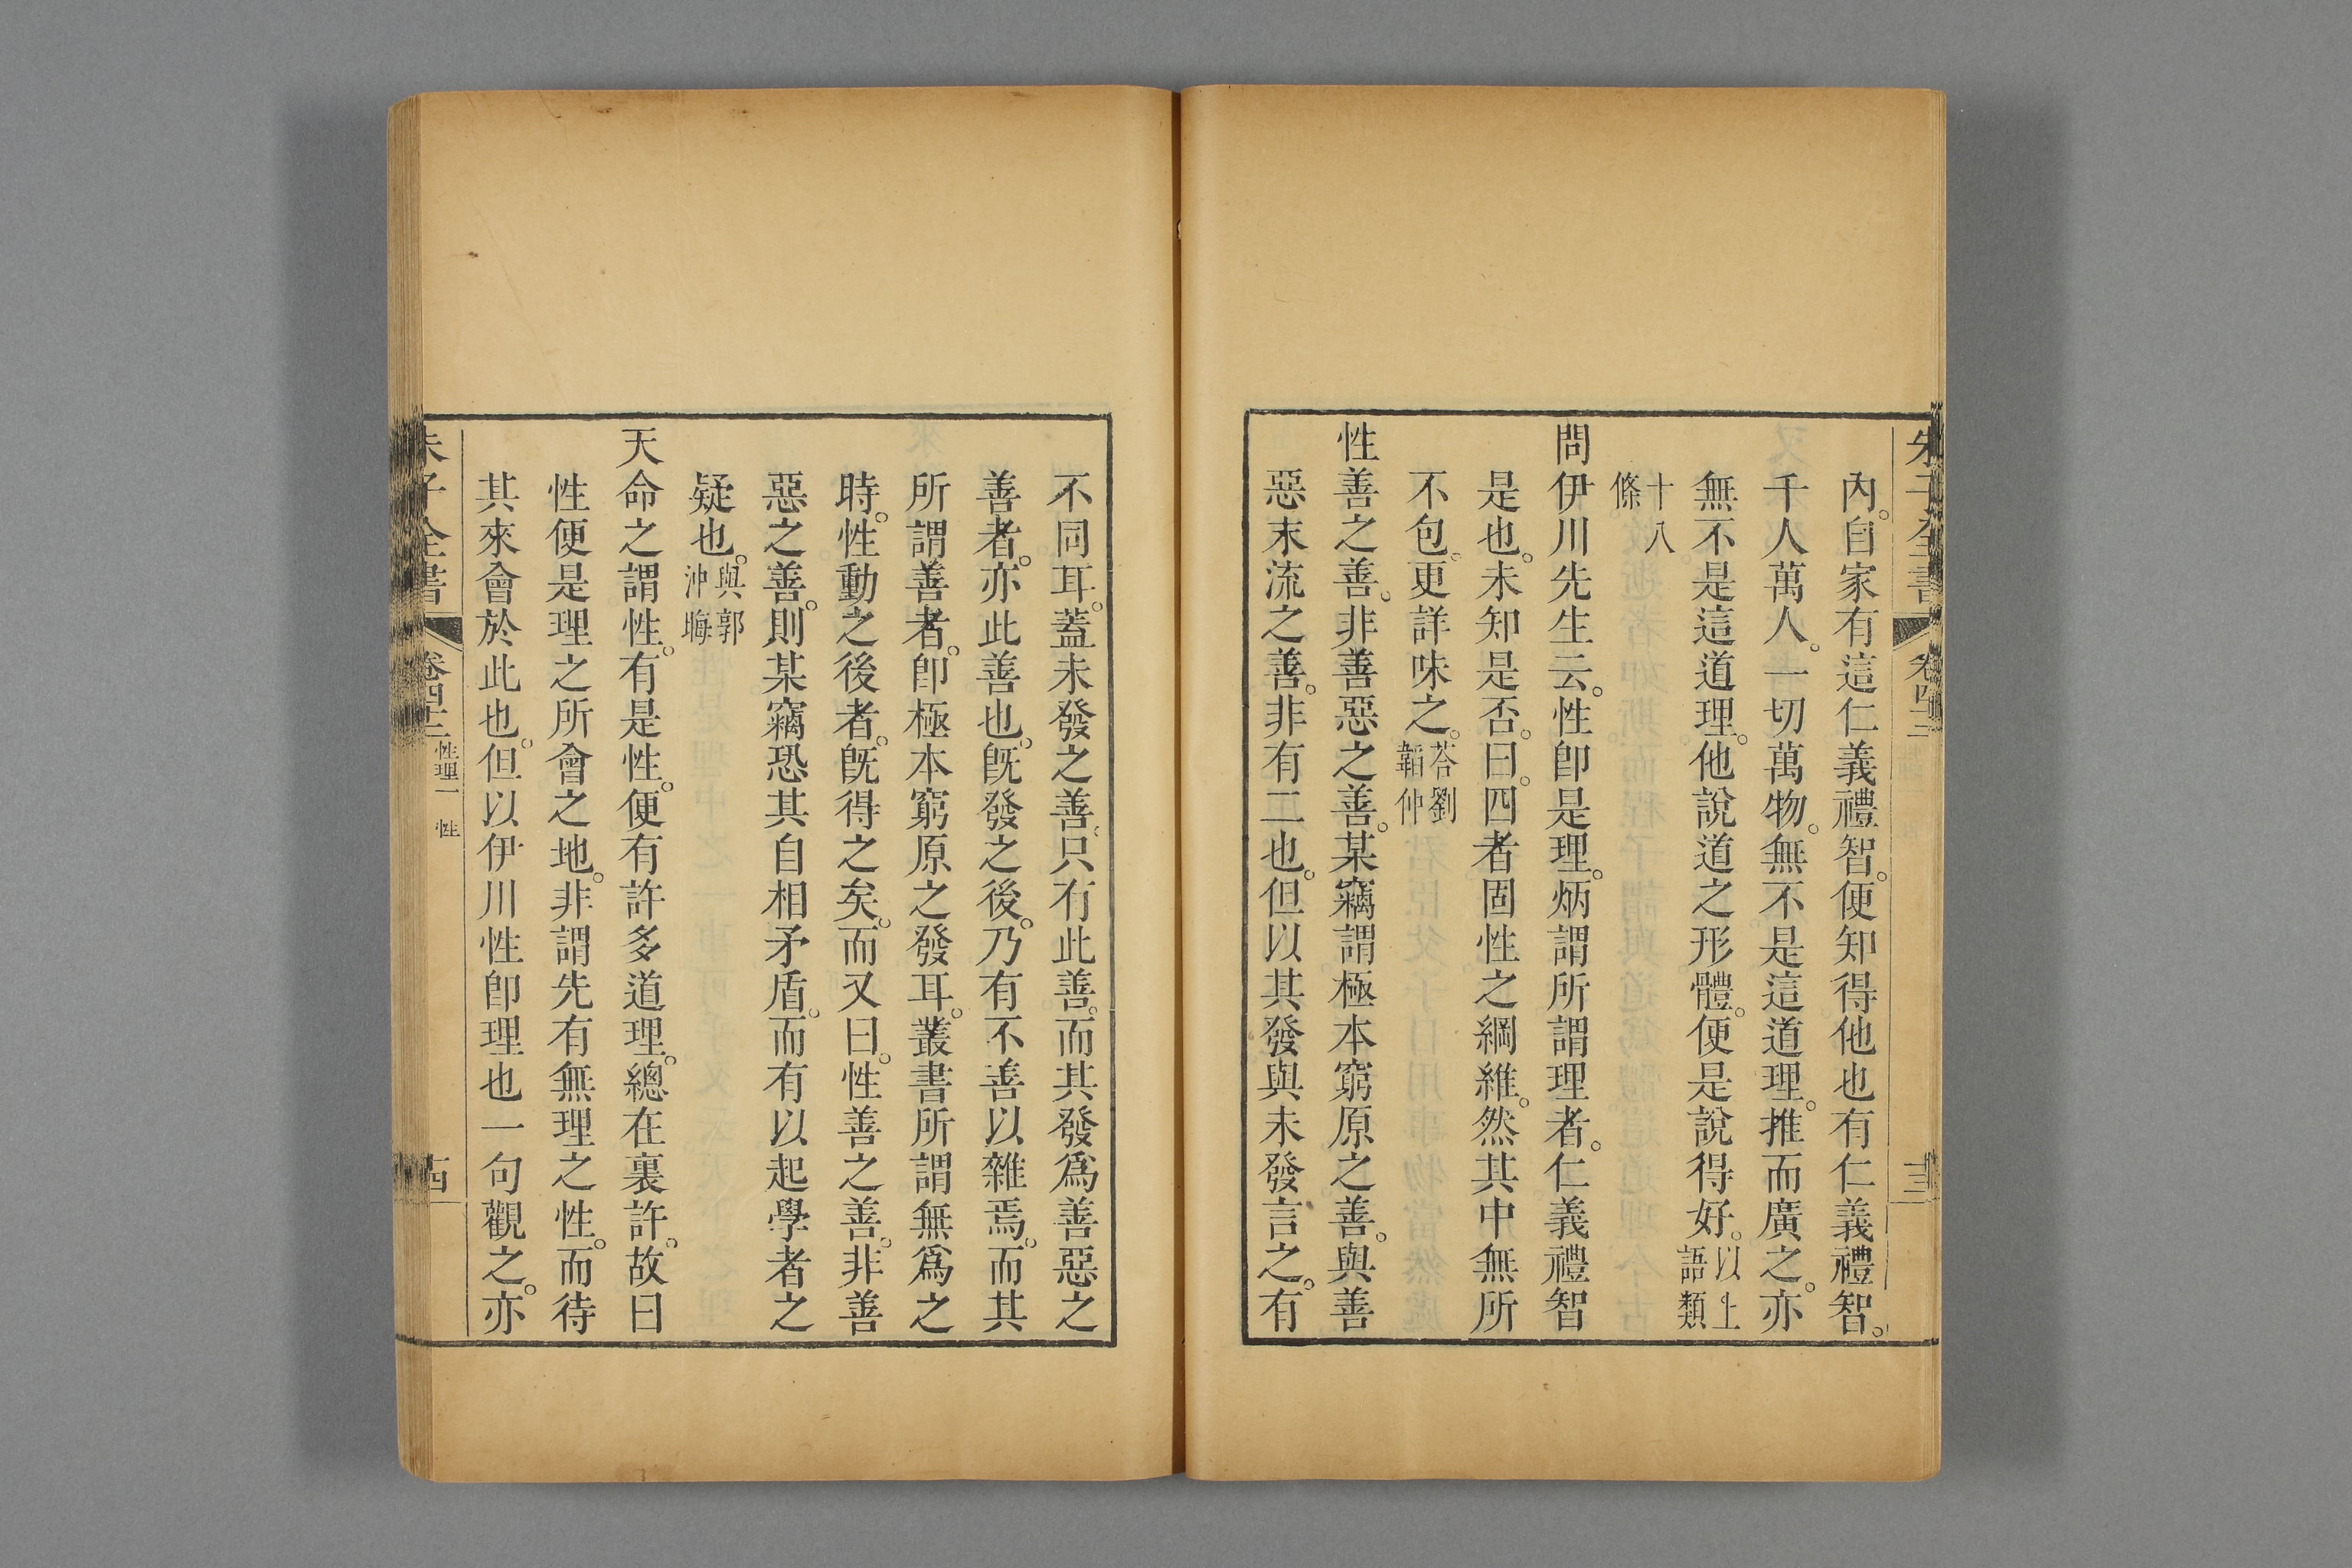 朱子全書 卷四十二 十三
內。自家有這仁義禮智。便知得他也有仁義禮智。
千人萬人。一切萬物。無不是這道理。推而廣之。亦
無不是這道理。他說道之形體。便是說得好。以上語類
十八條
問伊川先生云。性卽是理。炳謂所謂理者。仁義禮智
是也。未知是否。曰。四者固性之綱維。然其中無所
不包。更詳味之。荅劉韜仲
性善之善。非善惡之善。某竊謂極本窮原之善。與善
惡末流之善。非有二也。但以其發與未發言之。有
不同耳。蓋未發之善。只有此善。而其發爲善惡之
善者。亦此善也。旣發之後。乃有不善以雜焉。而其
所謂善者。卽極本窮原之發耳。叢書所謂無爲之
時。性動之後者。旣得之矣。而又曰。性善之善。非善
惡之善。則某竊恐其自相矛盾。而有以起學者之
疑也。與郭沖晦
天命之謂性。有是性。便有許多道理。總在裏許。故曰
性便是理之所會之地。非謂先有無理之性。而待
其來會於此也。但以伊川性卽理也一句觀之。亦
朱子全書 卷四十二 性理一 性 十四